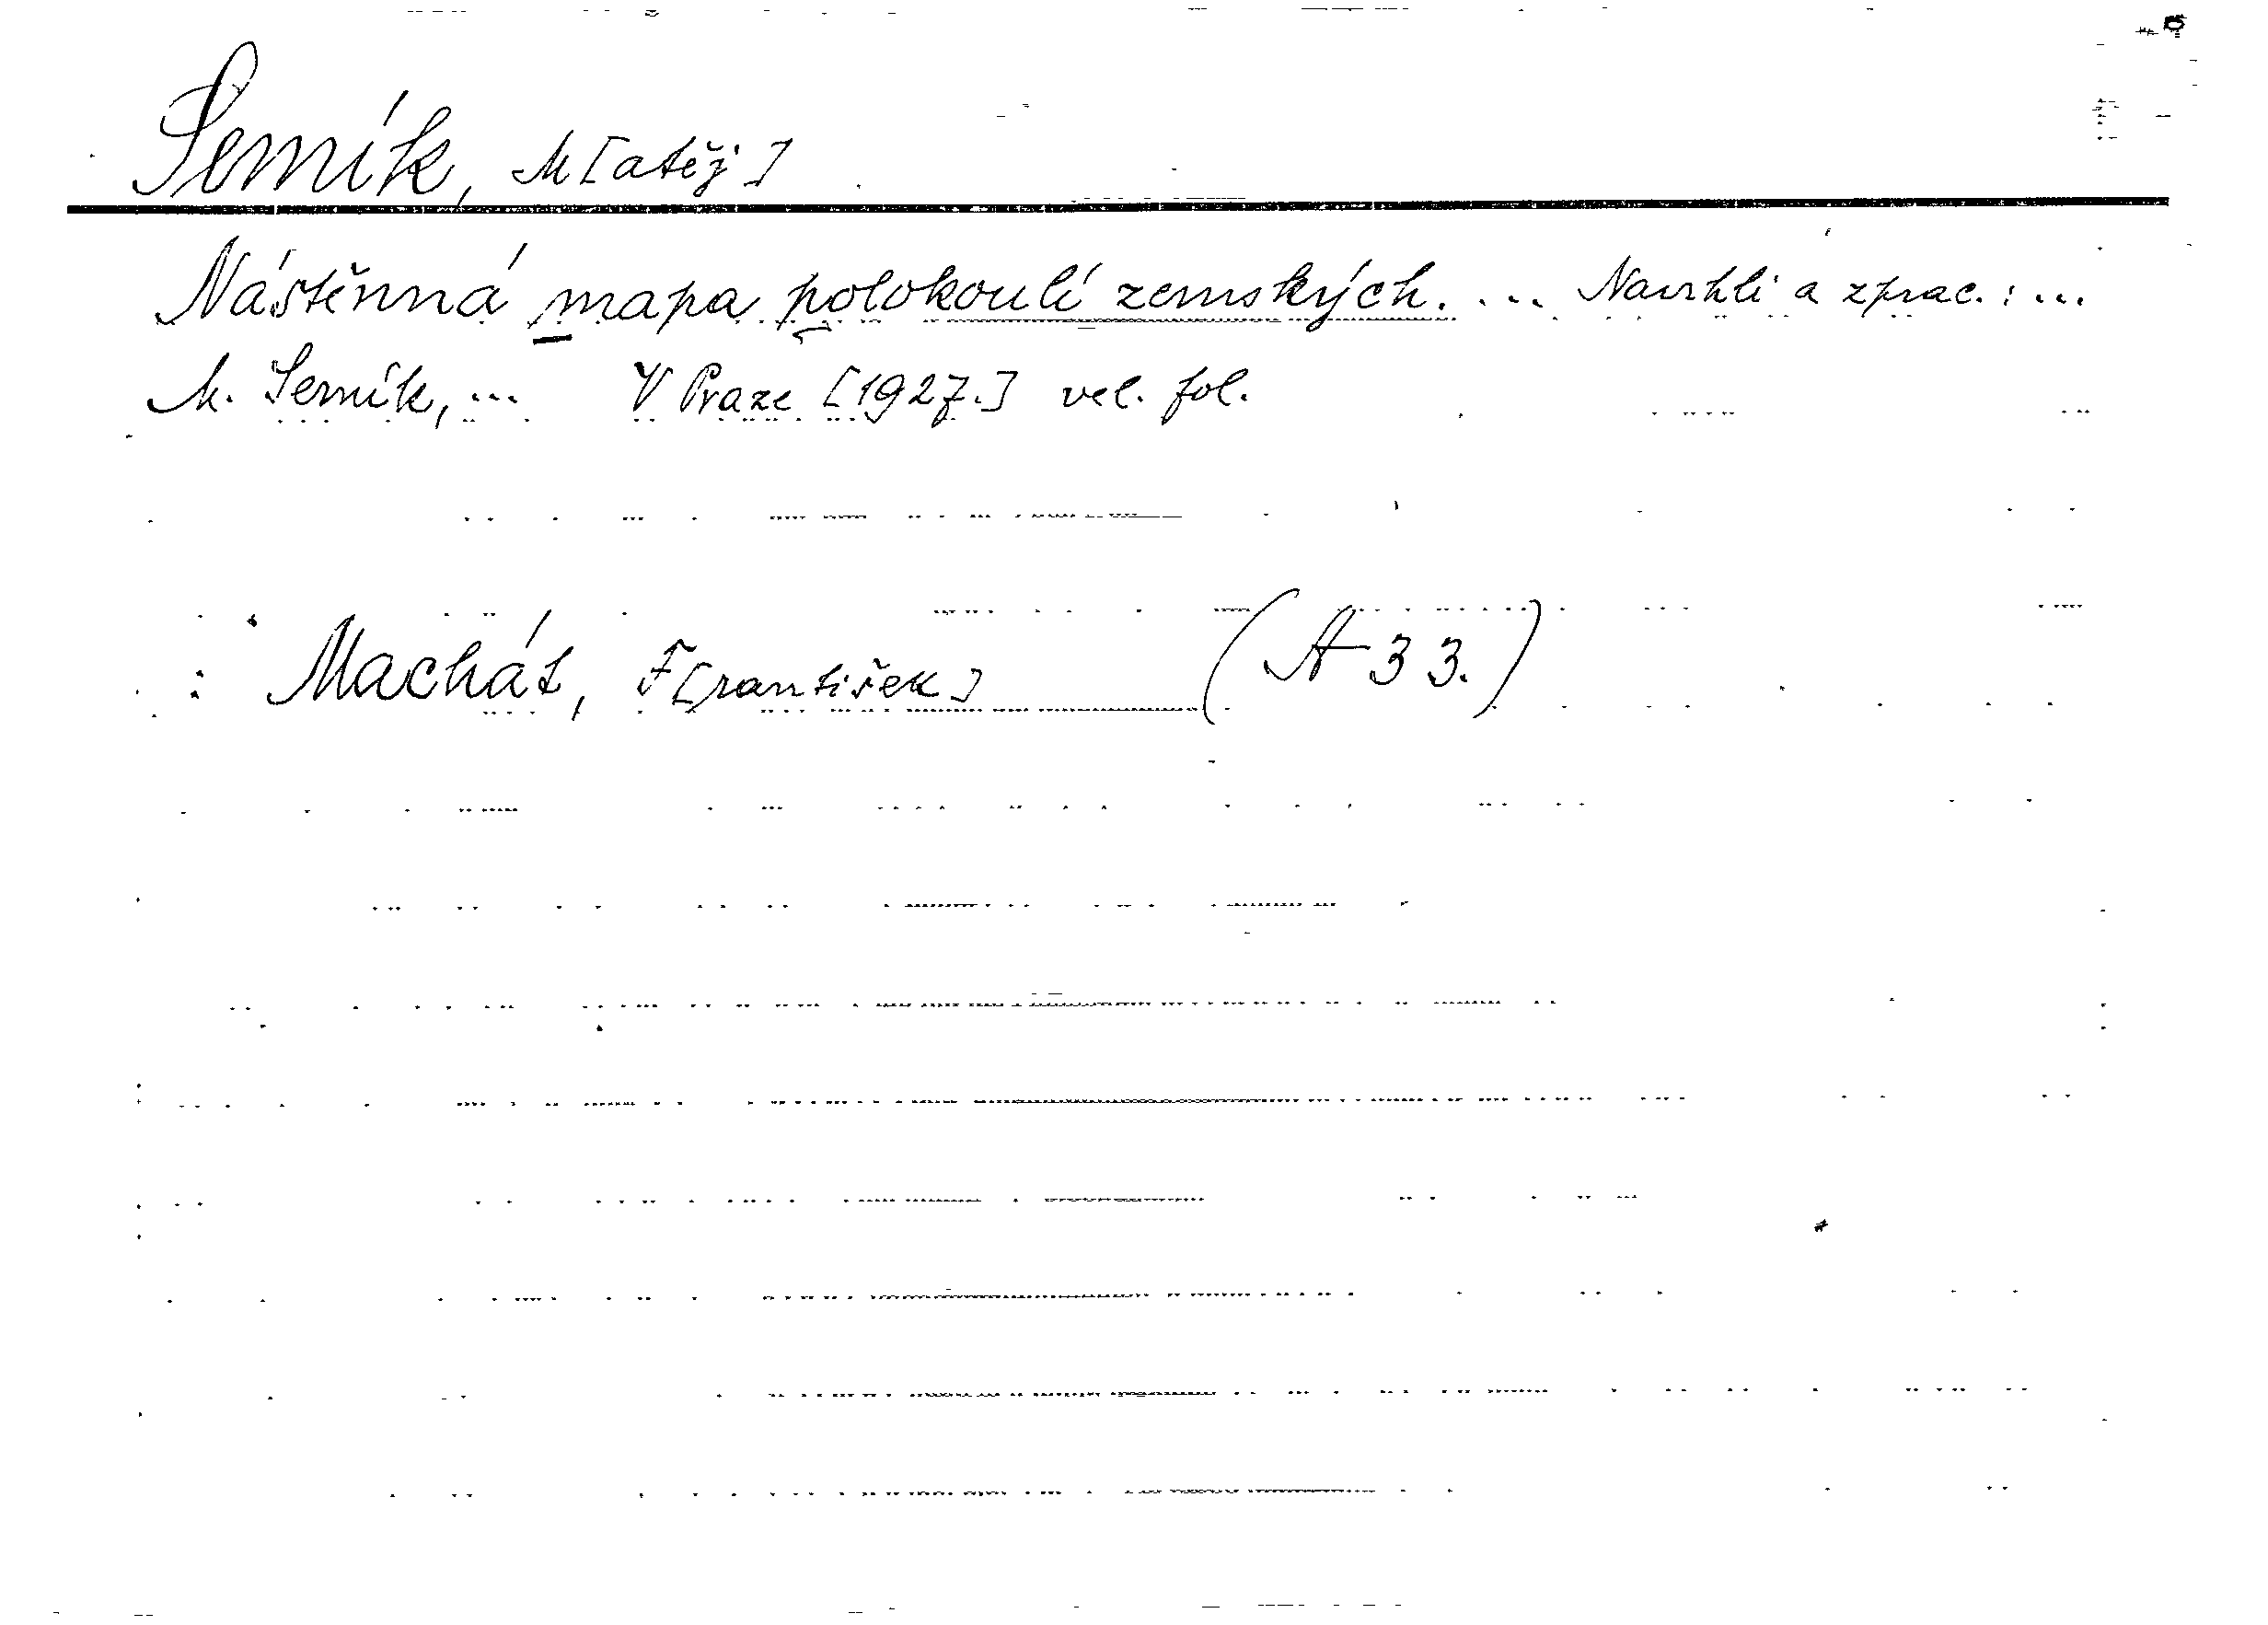 Semík, M[atěj]
Nástěnná mapa polokoulí zemských. ... Navrhli a zprac.: ...
M. Semík, ... V Praze [1927.] vel. fol.
: Machát, F[rantišek] (A 33.)